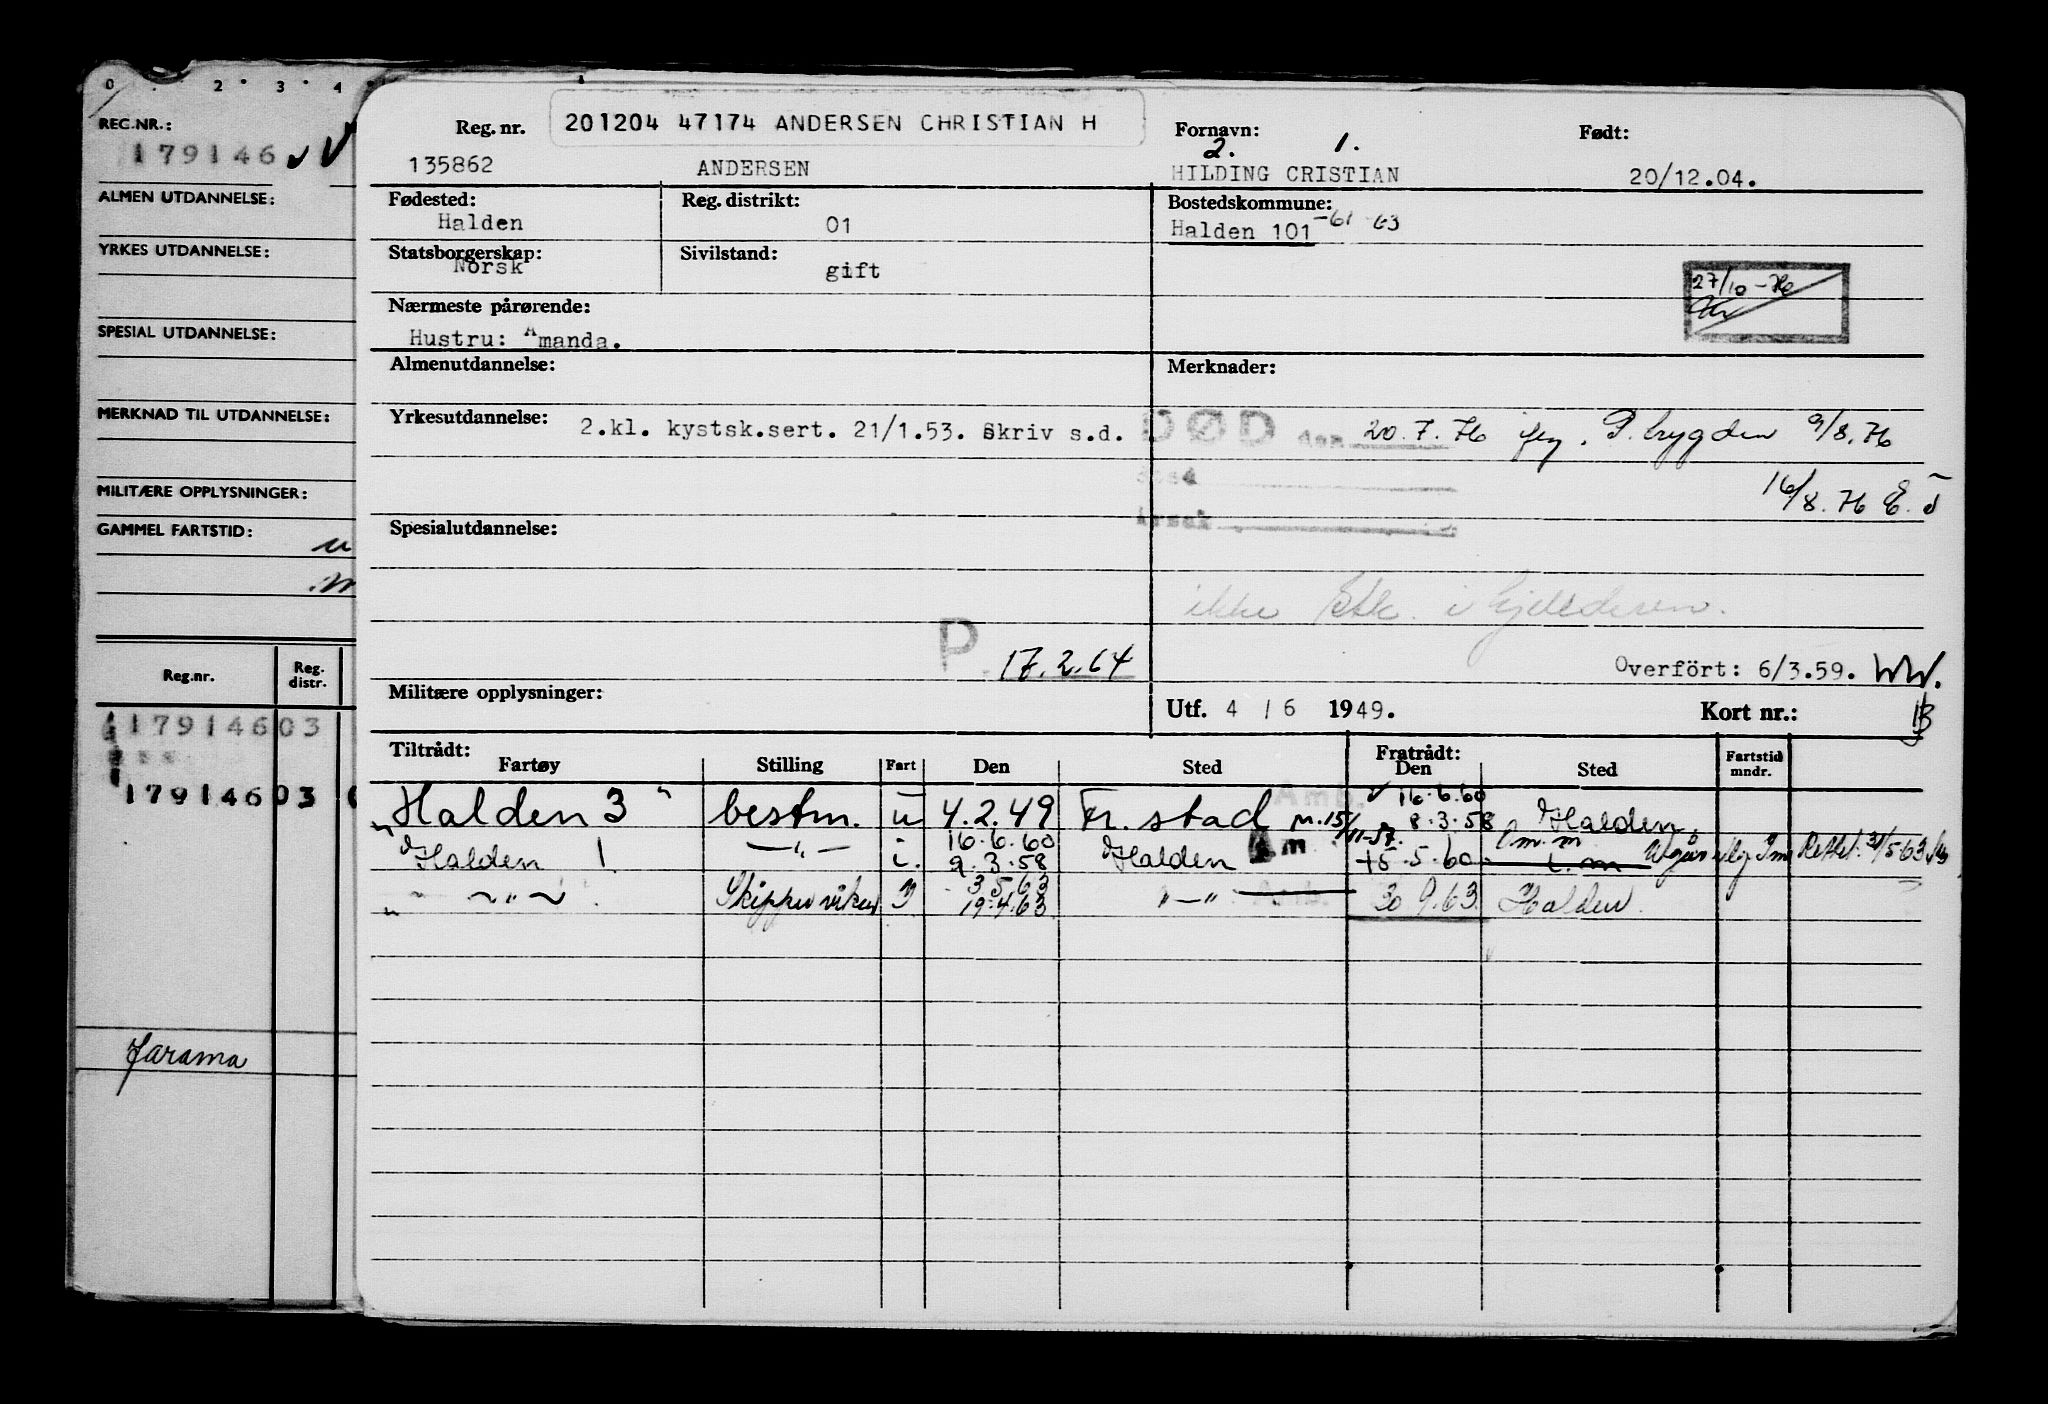 0 . 2 . 3 . 4
REG.NR.:
179146
ALMEN UTDANNELSE:
YRKES UTDANNELSE:
SPESIAL UTDANNELSE:
MERKNAD TIL UTDANNELSE:
MILITÆRE OPPLYSNINGER:
GAMMEL FARTSTID:
Reg.nr. Reg. distr.
179146 03
179146 03
Jarama
Reg. nr. 201204 47174 ANDERSEN CHRISTIAN H Fornavn: Født:
2. 1.
135862 ANDERSEN HILDING CRISTIAN 20/12.04.
Fødested: Reg. distrikt: Bostedskommune:
Halden 01 Halden 101 -61 63
Statsborgerskap: Sivilstand:
Norsk gift
27/10-76
Nærmeste pårørende:
Hustru: Amanda.
Almenutdannelse: Merknader:
Yrkesutdannelse: 2.kl. kystsk.sert. 21/1.53. Skriv s.d. DØD den 20.7.76 P. trygden 9/8.76
Sted
16/8.76
Årsak
Spesialutdannelse:
ikke
P 17.2.64
Overført: 6/3.59. WW.
Militære opplysninger: Utf. 4 / 6 1949. Kort nr.:
Tiltrådt: Fratrådt:
Fartøy Stilling Fart Den Sted Den Sted Fartstid mndr.
Amb. 16.6.60
"Halden 3" bestm. u 4.2.49 Fr. stad m. 15/11-57. 8.3.58 Halden
16.6.60 Om.m
Halden 1 —"— i. 9.3.58 Halden Am 15.5.60 i.m Rettet. 31/5 63
3.5.63
" — " — Skipper 19.4.63 "—" Amb. 30 9.63 Halden.